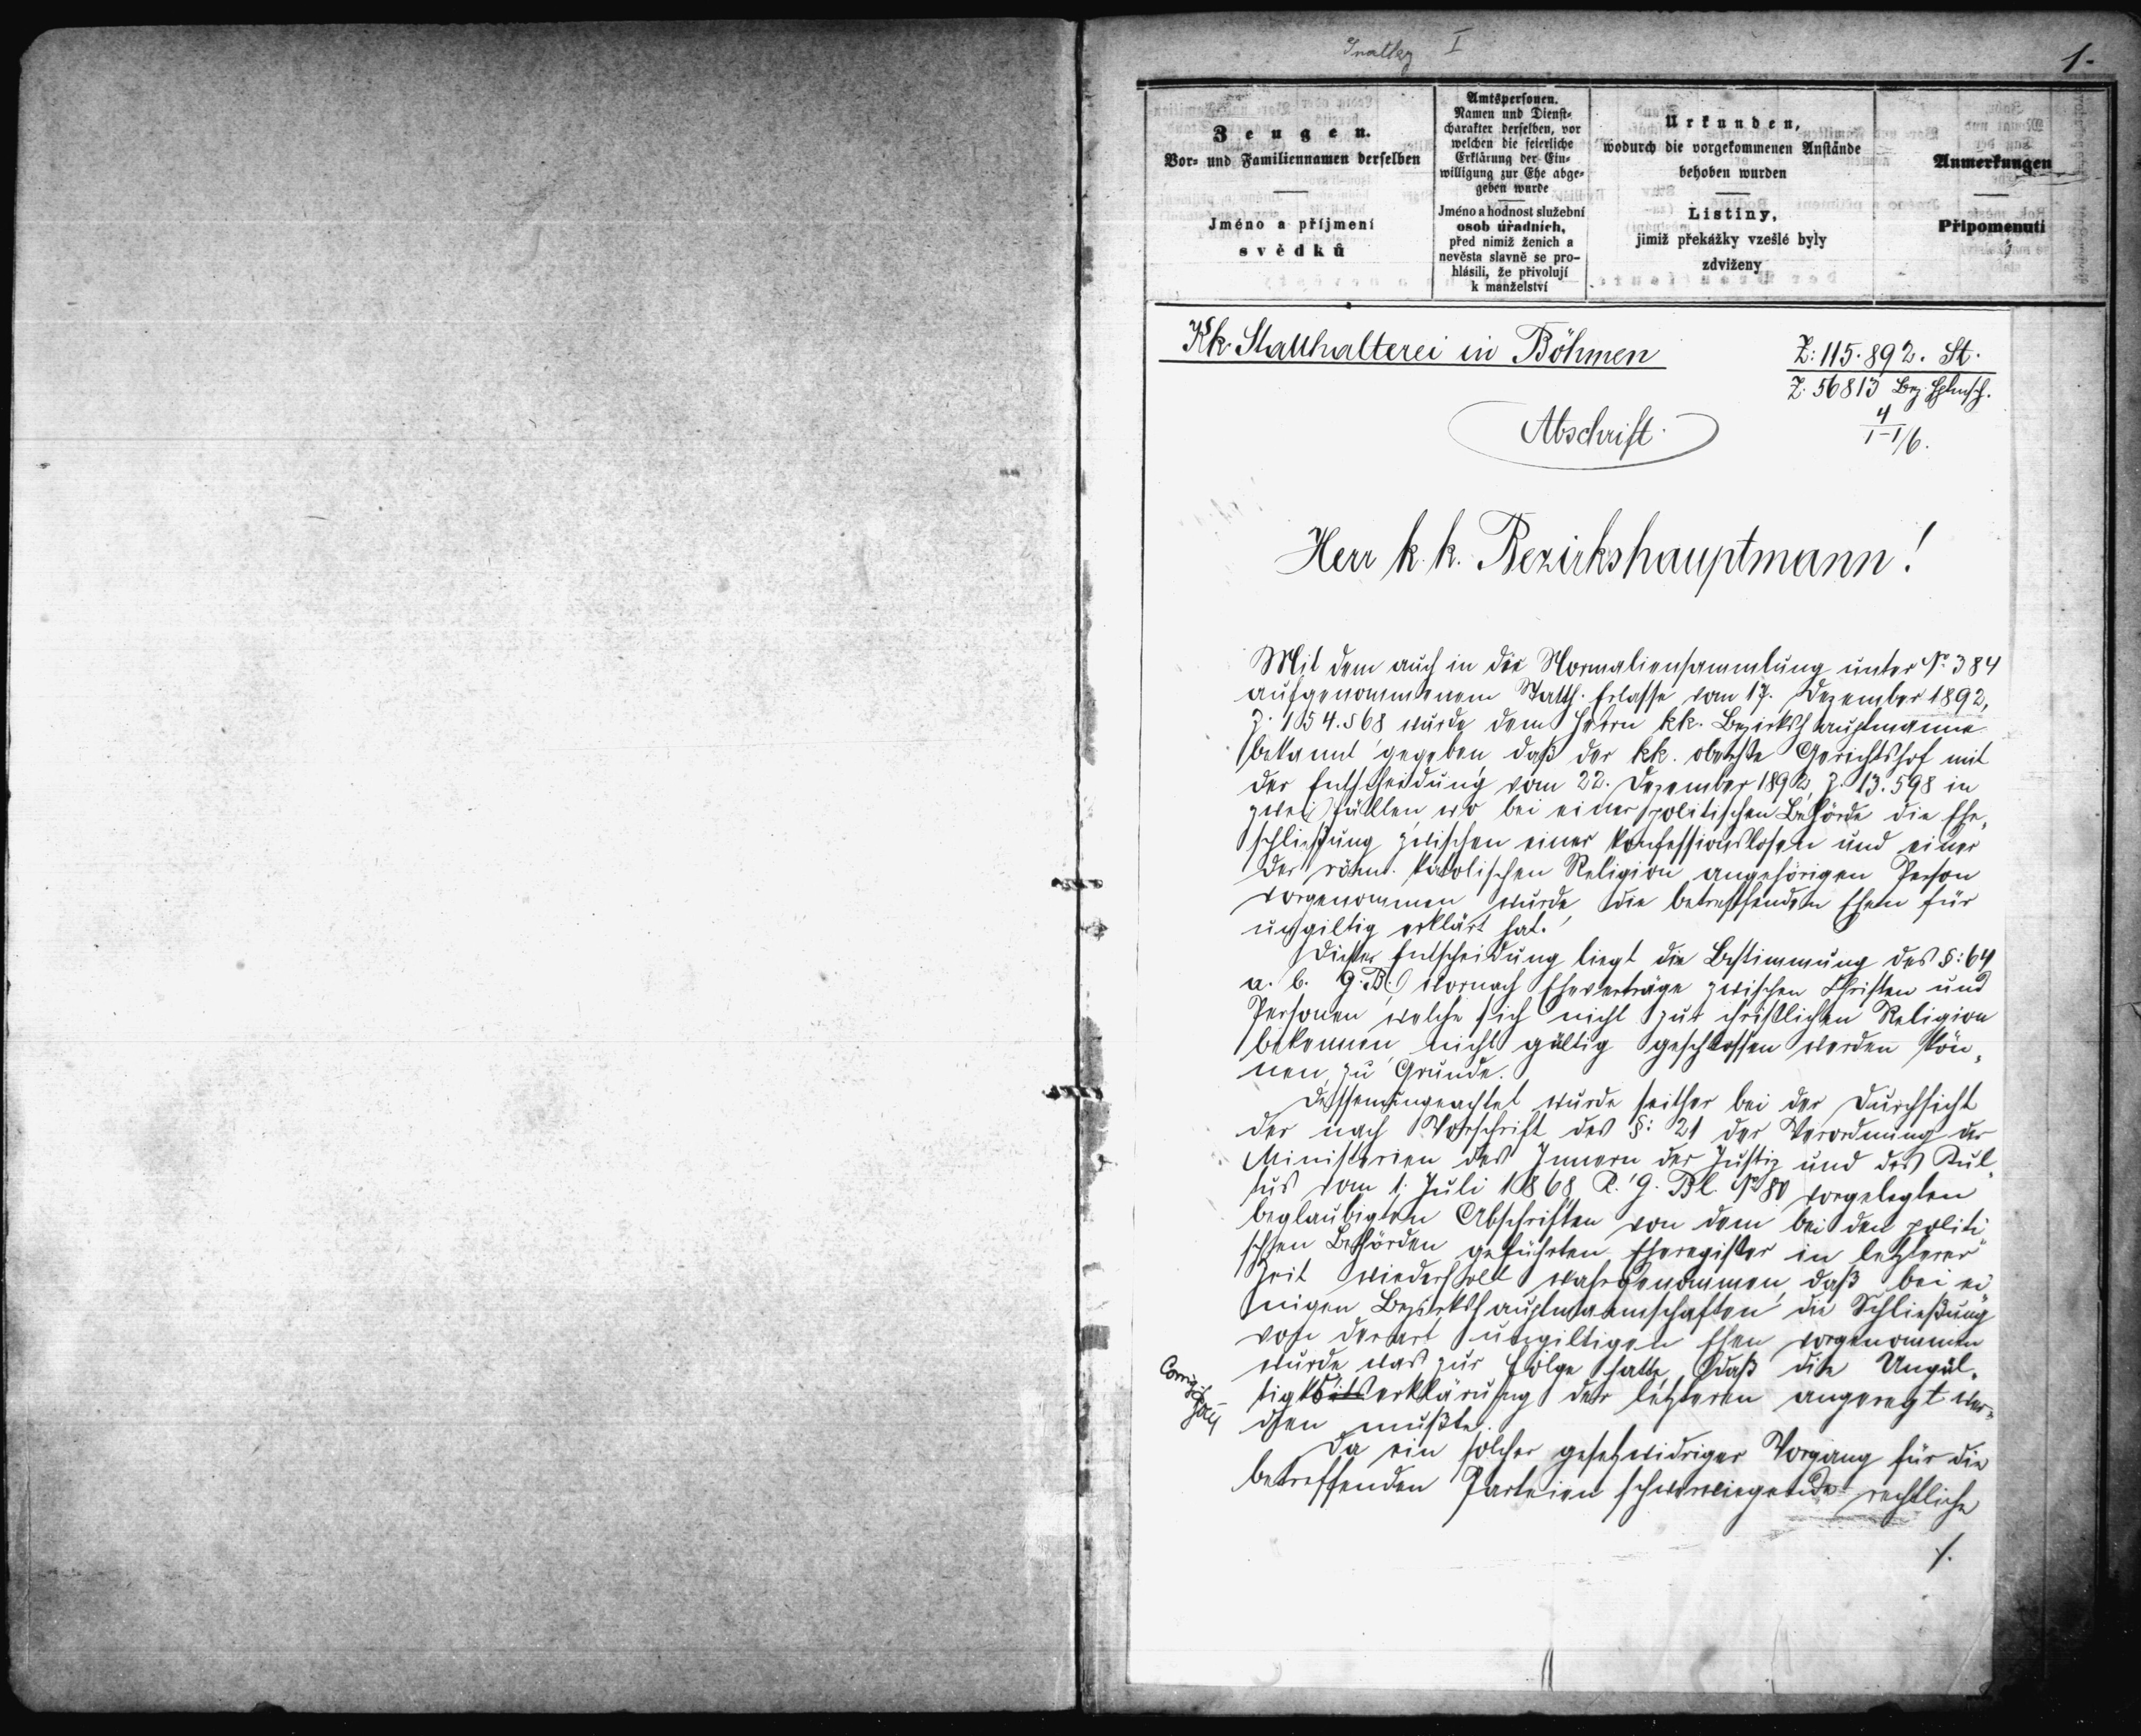 I
1.
Zeugen.
Vor- und Familiennamen derselben
Jméno a příjmení
svědků
Amtspersonen.
Namen und Dienst-
charakter derselben, vor
welchen die feierliche
Erklärung der Ein-
willigung zur Ehe abge-
geben wurde
Jméno a hodnost služební
osob úřadních,
před nimiž ženich a
nevěsta slavně se pro-
hlásili, že přivolují
k manželství
Urkunden,
wodurch die vorgekommenen Anstände
behoben wurden
Listiny,
jimiž překážky vzešlé byly
zdviženy
Anmerkungen
Připomenutí
Kk. Statthalterei in Böhmen
Z: 115.892. St.
Z. 56813 Bez. Hptmsch.
4
1-1/6.
Abschrift.
Herr k. k. Bezirkshauptmann!
Mit dem auch in die Normaliensammlung unter No. 384
aufgenommenem Statth. Erlasse vom 17. Dezember 1892,
Z. 154.568 wurde dem Herrn kk. Bezirkshauptmanne
bekannt gegeben, daß der kk. oberste Gerichtshof mit
der Entscheidung vom 22. Dezember 1892, Z. 13.598 in
zwei Fällen, wo bei einer politischen Behörde die Ehe„
schließung zwischen einer konfessionslosen und einer
der röm. katolischen Religion angehörigen Person
vorgenommen wurde, die betreffenden Ehen für
ungiltig erklärt hat.
Dieser Entscheidung liegt die Bestimmung des §: 64
a. b. G. B. wornach Eheverträge zwischen Christen und
Personen, welche sich nicht zur christlichen Religion
bekennen, nicht gültig geschlossen werden kön„
nen, zu Grunde.
Dessenungeachtet wurde seither bei der Durchsicht
der nach Vorschrift des §: 21 der Verordnung der
Ministerien des Innern der Justiz und des Kul„
tus vom 1. Juli 1868, R. G. Bl. No 80 vorgelegten
beglaubigten Abschriften von dem bei den politi„
schen Behörden geführten Eheregister in letzterer
Zeit wiederholt wahrgenommen, daß bei ei„
nigen Bezirkshauptmannschaften die Schließung
von derart ungiltigen Ehen vorgenommen
wurde was zur Folge hatte, daß die Ungül„
tigkeitserklärung der letzteren angeregt wer„
den mußte.
Da ein solcher gesetzwidriger Vorgang für die
betreffenden Parteien schwerwiegende rechtliche
./.